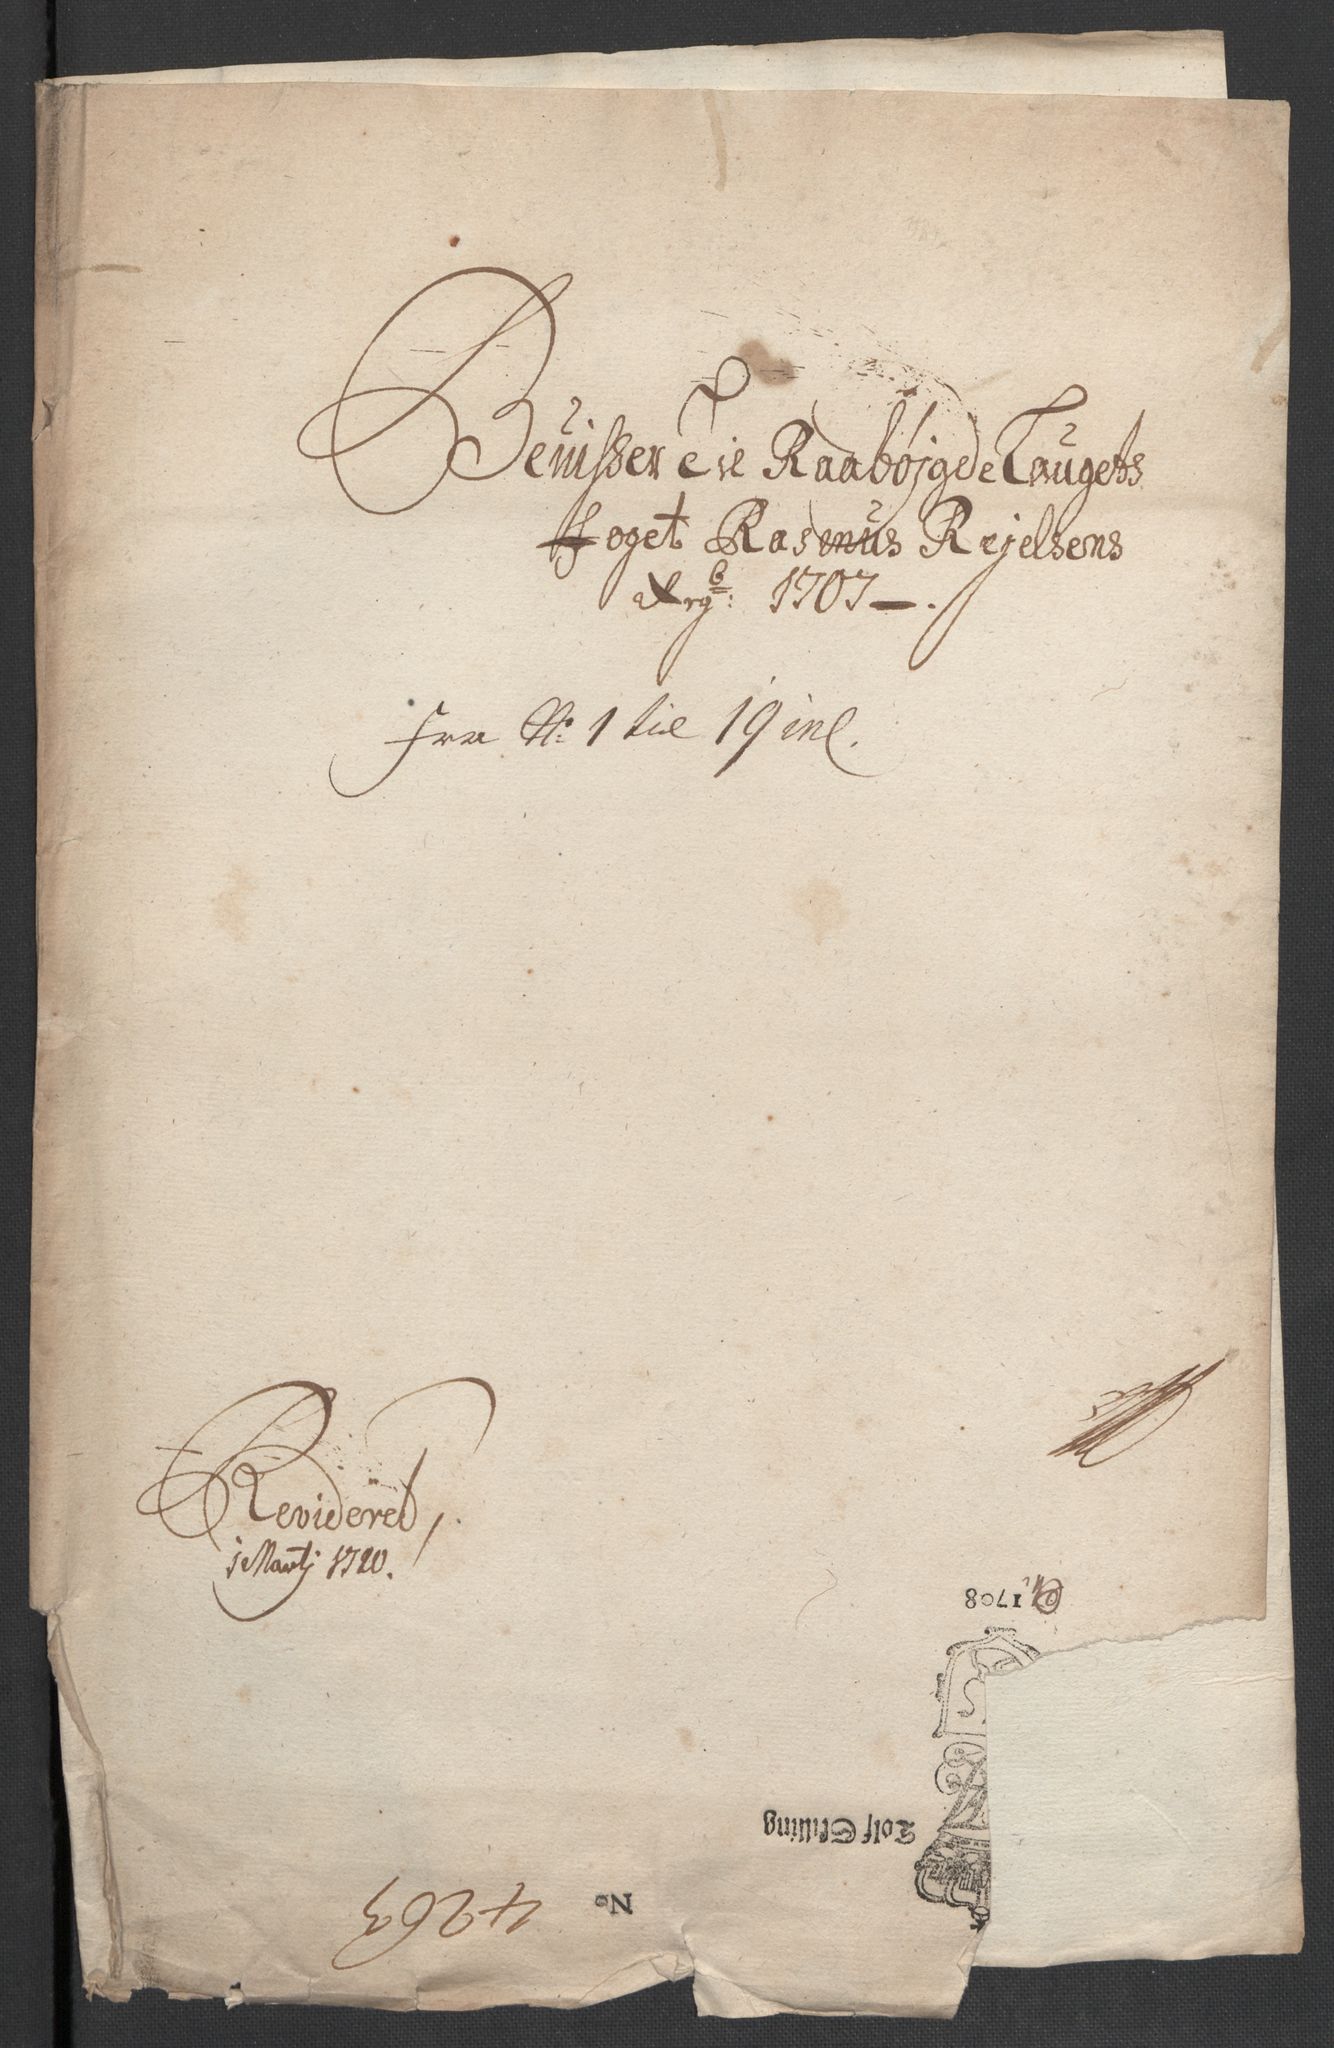 Beuisser Til Raabøjgde Laugets
Foget Rasmus Rejelsens
Rgb: 1707 —.
Fra No: 1 til 19 incl.
Revideret
j Martj 1720.
1708
Tolf Skilling
No 4263